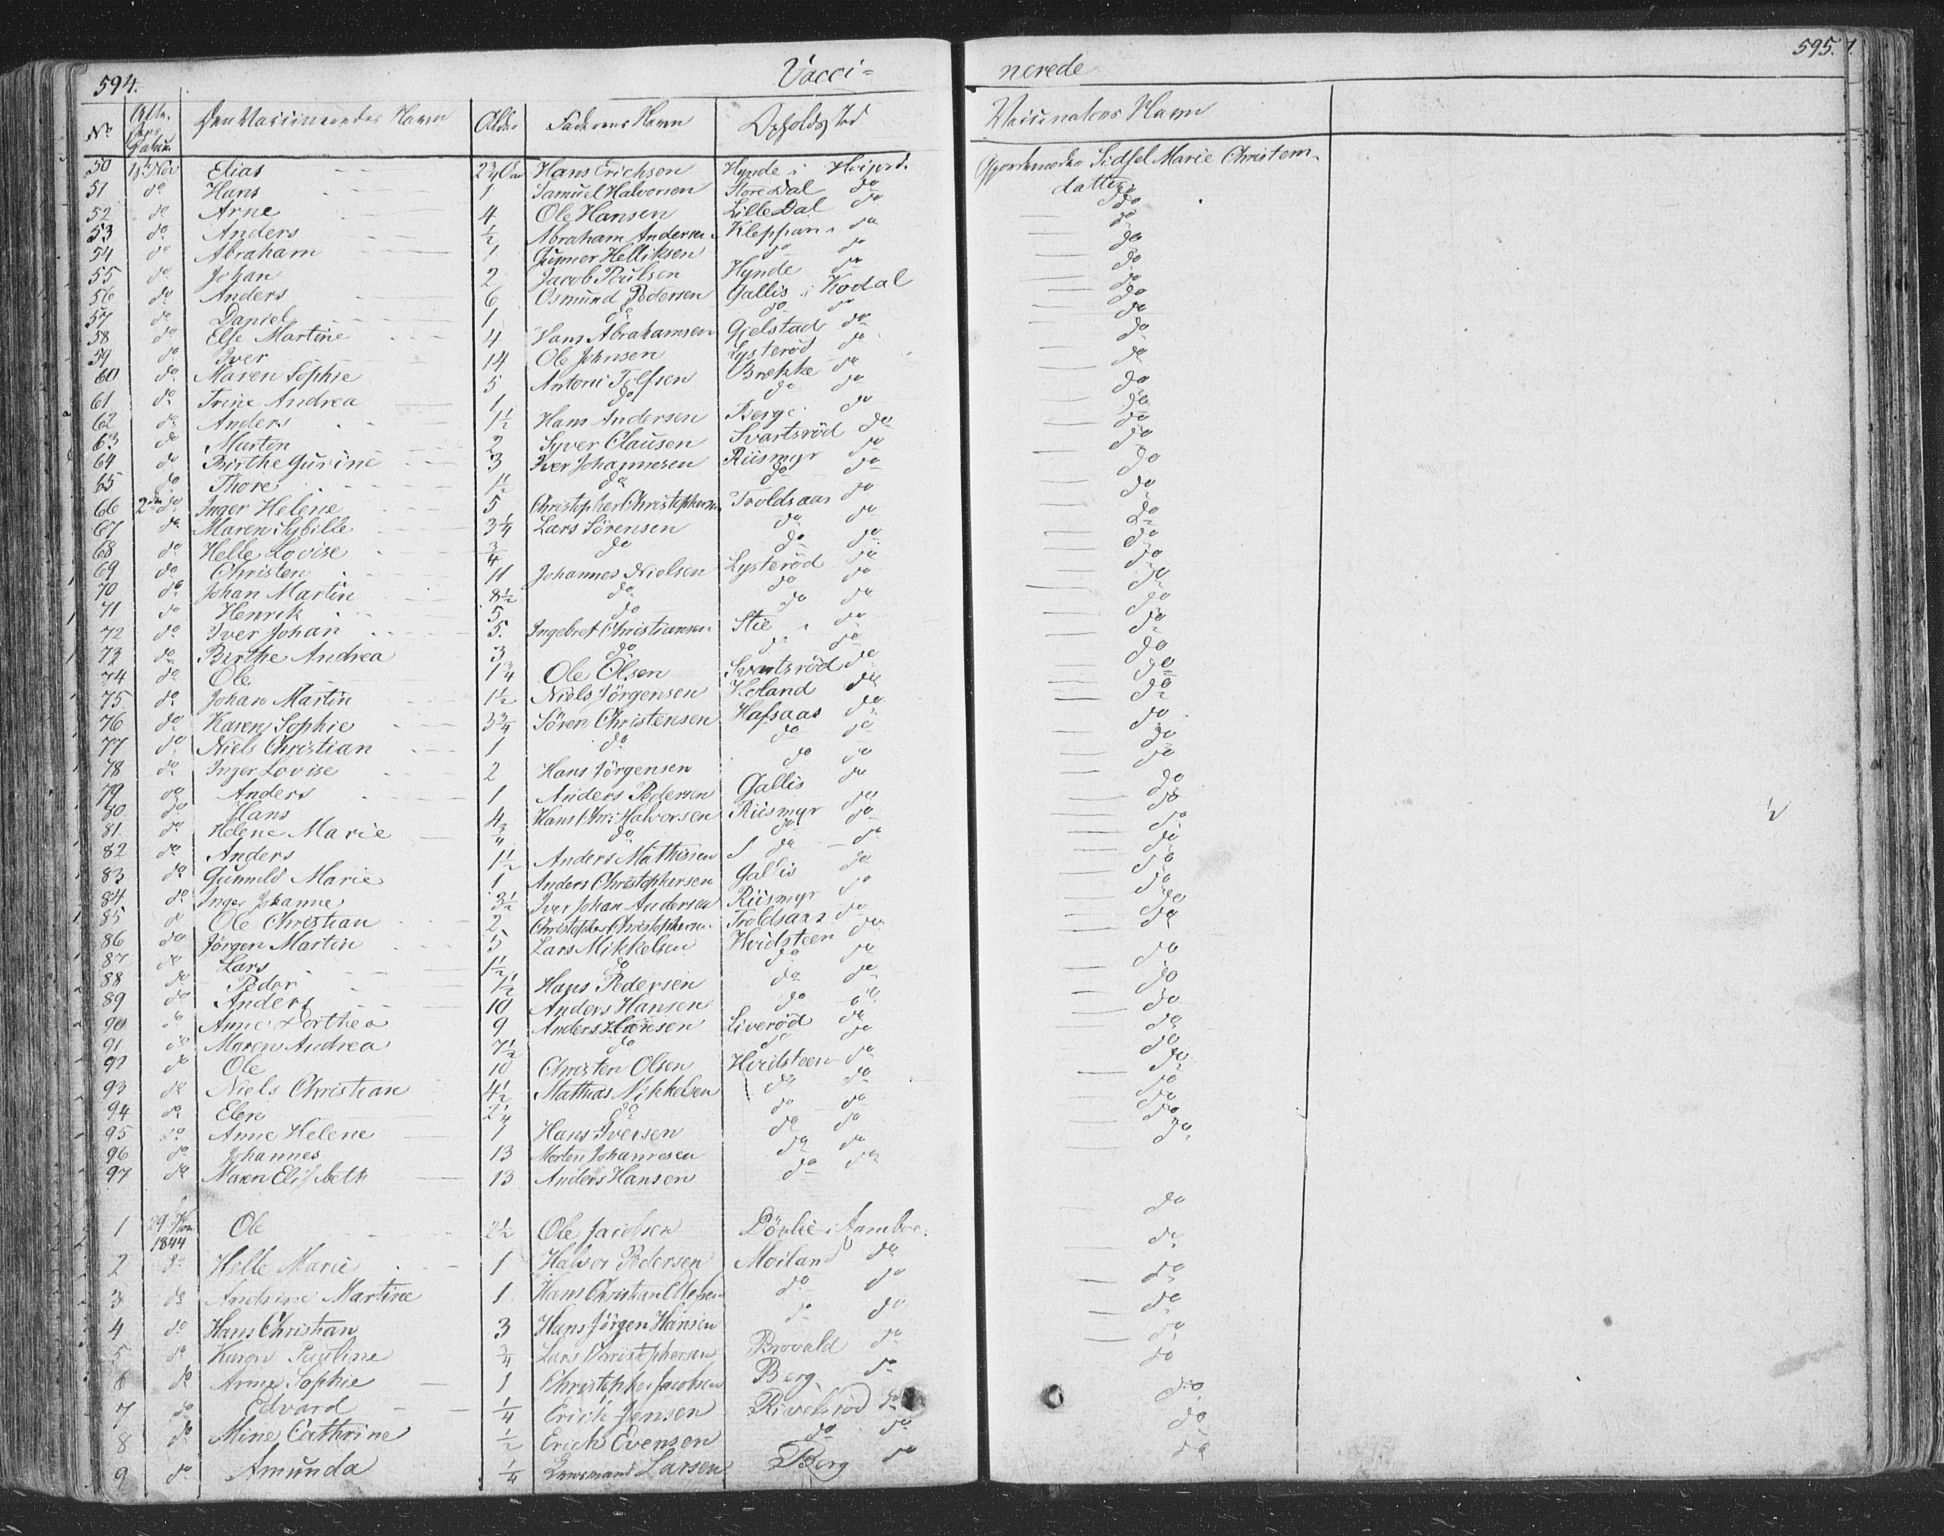 594.
Vacci=
nerede
595.
No. Den Vaccineredes Navn Alder Faderens Navn Opholdsted Vaccinators Navn
50 18 Nov Elias Hans Erichsen Hynde i
Sidsel Marie Christens-
datter
51 do Hans 1 Samuel Halvorsen Store Dal do do
52 do Arne 4 Ole Hansen Lille Dal do do
53 do Anders 1/2 Abraham Andersen Kleppan do do
54 do Abraham 1 Gunner Helliksen do do do
55 do Johan 2 Jacob Poulsen Hynde do do
56 do Anders 6 Osmund Pedersen Gallis i Kodal do
57 do Daniel 1 do do do do
58 do Else Martine 4 Hans Abrahamsen Gjelstad do do
59 do Iver 14 Ole Johnsen Lysterød do do
60 do Maren Sophie 5 Antoni Tolfsen Brekke do do
61 do Trine Andrea 1 do do do do
62 do Anders 1 1/2 Hans Andersen Berge do do
63 do Martin 2 Syver Clausen Svartsrød do do
64 do Birthe Gurine 3 Iver Johannesen Riismyr do do
65 do Thore 1 1/2 do do do do
66 2den do Inger Helene 5 Christopher Christophersen Troldsaas do do
67 do Maren Sybille 3 1/4 Lars Sørensen do do do
68 do Helle Lovise 3/4 do do do do
69 do Christen 11 Johannes Nielsen Lysterød do do
70 do Johan Martin 8 1/2 do do do do
71 do Henrik 5 do do do do
72 do Iver Johan 5 Ingebret Christiansen Stie do do
73 do Birthe Andrea 3 do do do do
74 do Ole 1 3/4 Ole Olsen Svartsrød do do
75 do Johan Martin 1 1/2 Niels Jørgensen Holand do do
76 do Karen Sophie 3 3/4 Søren Christensen Hafsaas do do
77 do Niels Christian 1 do do do do
78 do Inger Lovise 2 Hans Jørgensen do do do
79 do Anders 1 Anders Pedersen Gallis do do
80 do Hans 4 Hans Chri Halvorsen Riismyr do do
81 do Helene Marie 3/4 do do do do
82 do Anders 1 1/2 Anders Mathisen do do do
83 do Gunnild Marie 1 Anders Christophersen Gallis do do
84 do Inger Johanne 3 1/2 Iver Johan Andersen Riismyr do do
85 do Ole Christian 2 Christopher Christophersen Troldsaas do do
86 do Jørgen Martin 5 Lars Mikkelsen Hvidsteen do do
87 do Lars 1 1/2 do do do do
88 do Peder 1/2 Hans Pedersen do do do
89 do Anders 10 Anders Hansen do do do
90 do Anne Dorthea 9 Anders Hansen Liverød do do
91 do Maren Andrea 7 1/2 do do do do
92 do Ole 10 Christen Olsen Hvidsteen do do
93 do Niels Christian 4 1/2 Mathias Nikkelsen do do do
94 do Elen 2 1/4 do do do do
95 do Anne Helene 1 Hans Iversen do do do
96 do Johannes 13 Morten Johannesen do do do
97 do Maren Elisabeth 13 Anders Hansen do do
1 1844 Ole 2 1/2 Ole Jacobsen do
2 do Helle Marie 1 Halvor Pedersen Moiland do do
3 do Andrine Martine 1 Hans Christian do do do
4 do Hans Christian 3 Hans Jørgen Hansen do do do
5 do Karen Pauline 3/4 Lars Christophersen Brovald do do
6 do Anne Sophie 1 Christopher Jacobsen Berg do do
7 do Edvard 1/4 Erich Jensen do do
8 do Mine Cathrine 1/2 Erich Evensen do do do
9 do Amunda 1/4 Larsen Berg do do